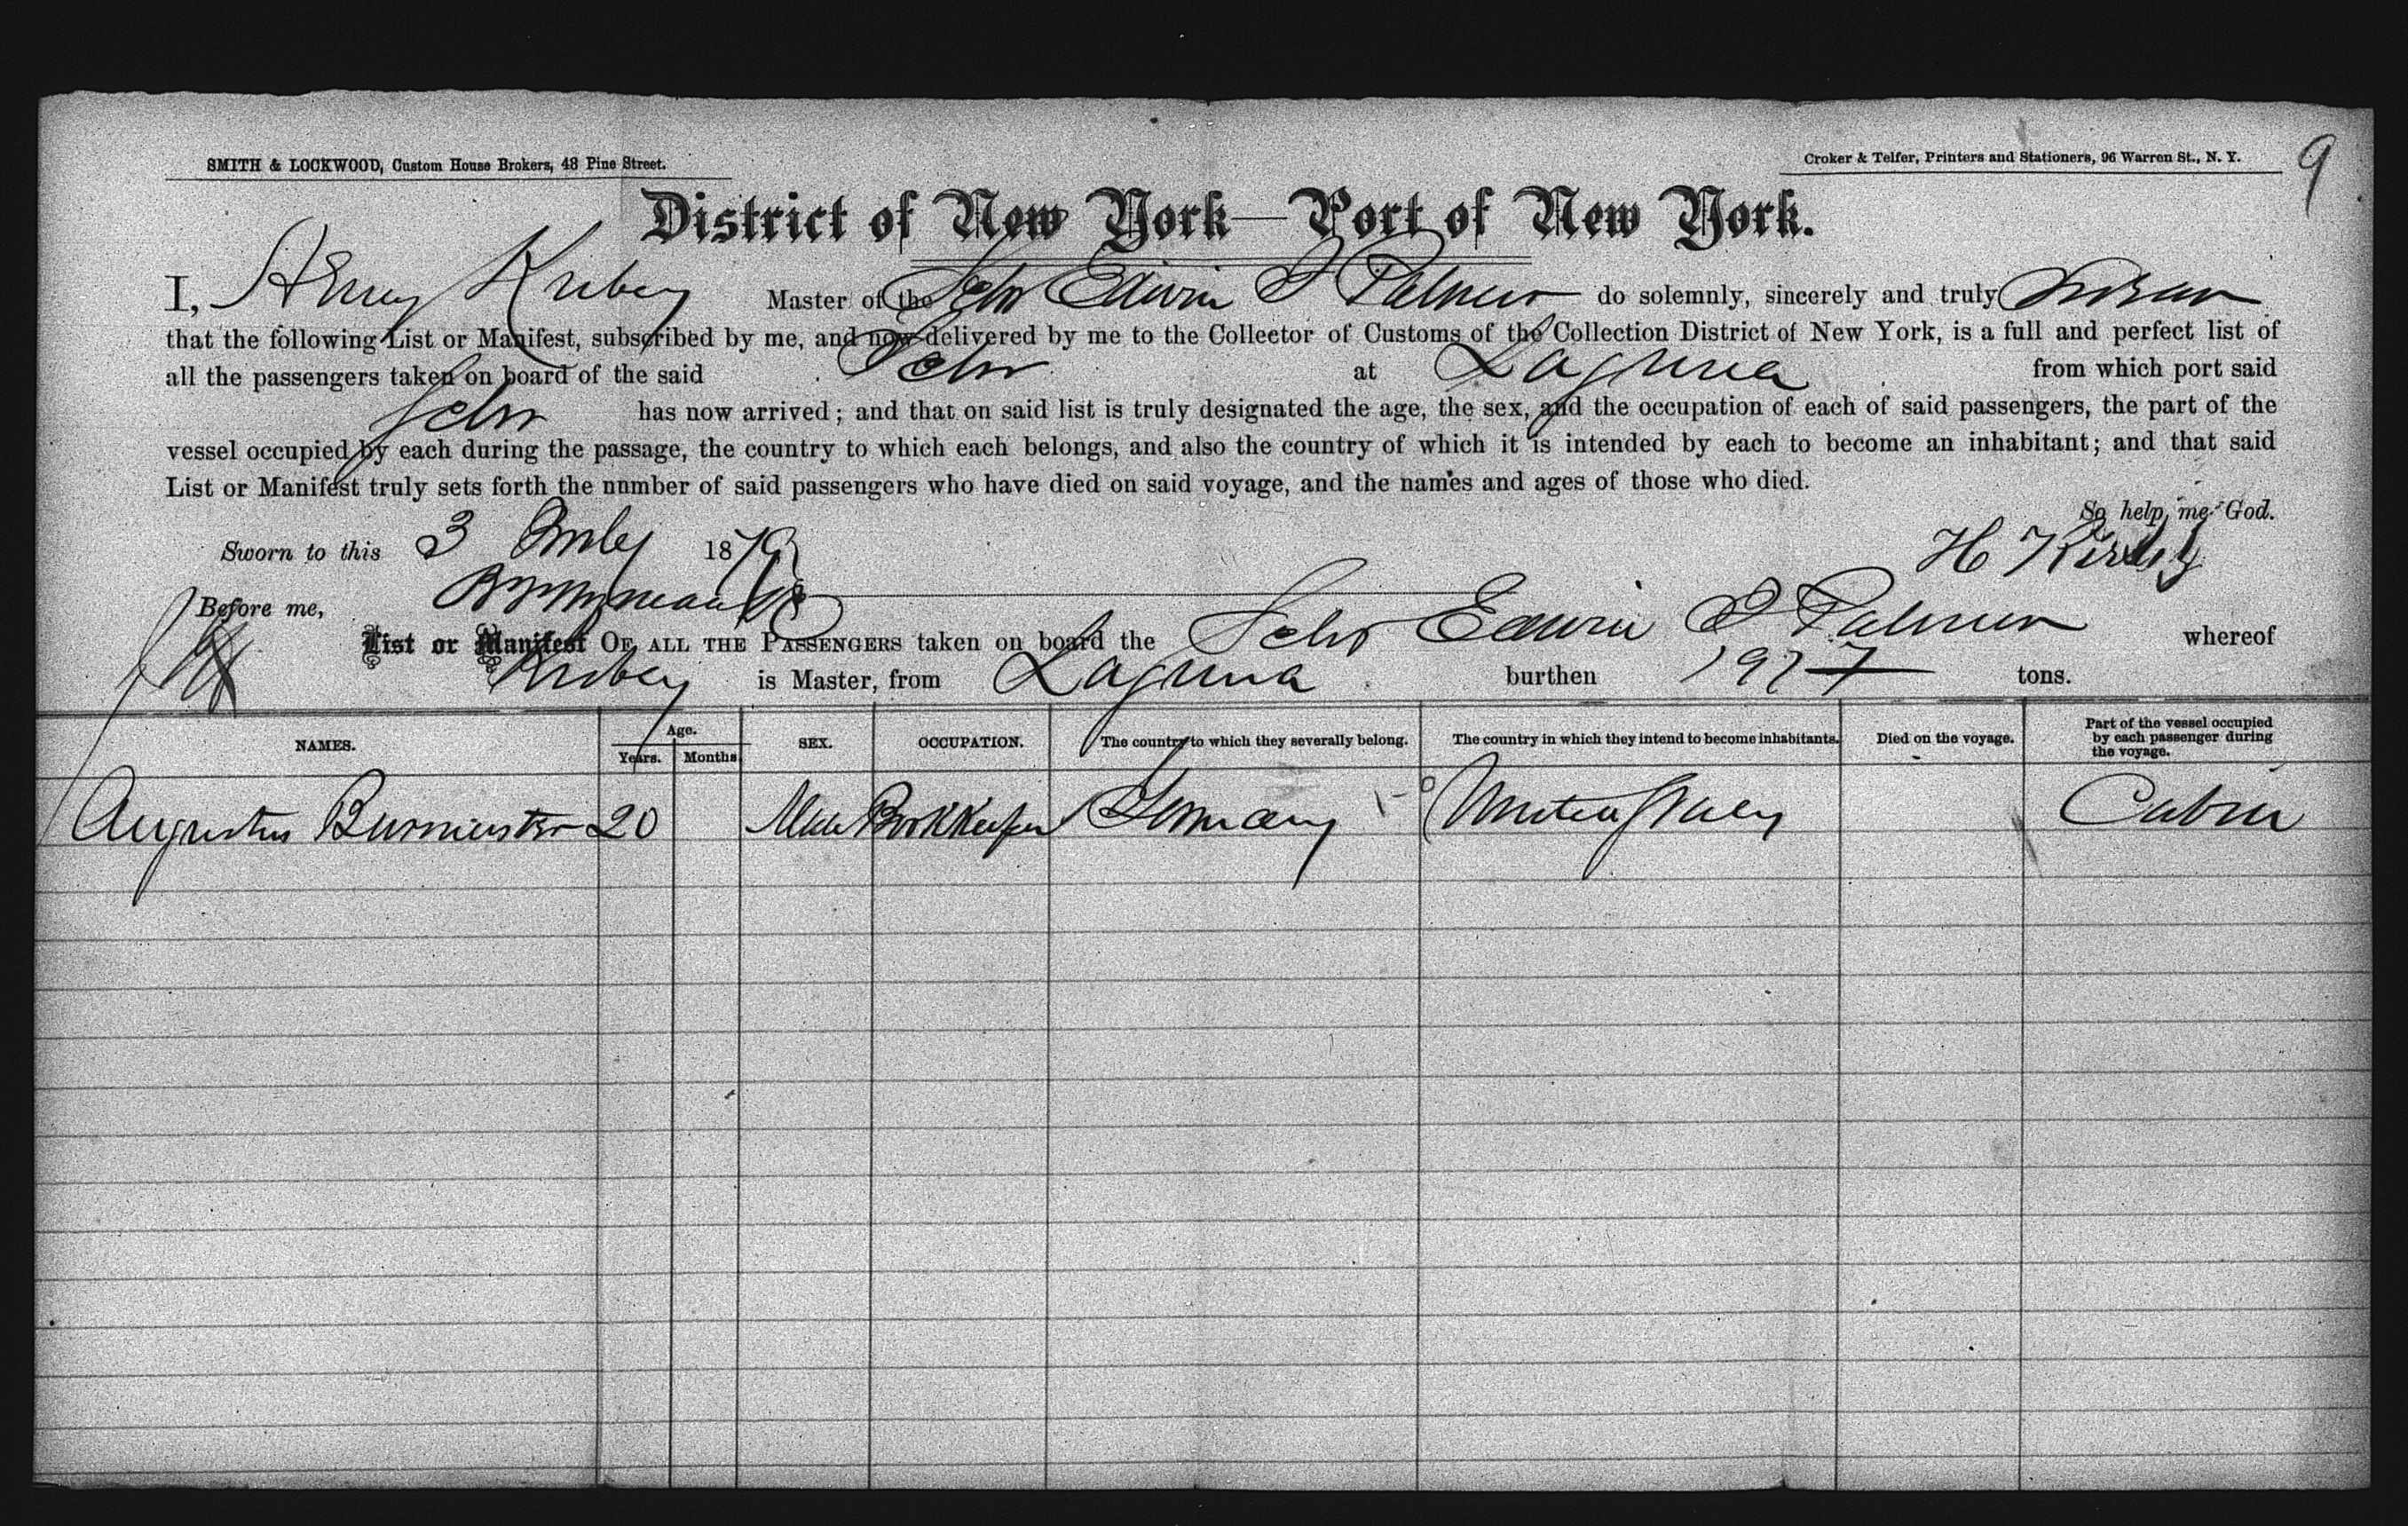 9
SMITH & LOCKWOOD, Custom House Brokers, 48 Pine Street.
Croker & Telfer, Printers and Stationers, 96 Warren St., N. Y.
District of New York—Port of New York.
I, Henry Master of the Schr Edwin I Palmer do solemnly, sincerely and truly swear
that the following List or Manifest, subscribed by me, and now delivered by me to the Collector of Customs of the Collection District of New York, is a full and perfect list of
all the passengers taken on board of the said Schr at Laguna from which port said
Schr has now arrived; and that on said list is truly designated the age, the sex, and the occupation of each of said passengers, the part of the
vessel occupied by each during the passage, the country to which each belongs, and also the country of which it is intended by each to become an inhabitant; and that said
List or Manifest truly sets forth the number of said passengers who have died on said voyage, and the names and ages of those who died.
So help me God.
Sworn to this 3 1879 H
Before me,
List or Manifest OF ALL THE PASSENGERS taken on board the Schr Edwin I Palmer whereof
is Master, from Laguna burthen 197 tons.
NAMES. Age. Years. Months. SEX. OCCUPATION. The country to which they severally belong. The country in which they intend to become inhabitants. Died on the voyage. Part of the vessel occupied by each passenger during the voyage.
Augustus Burmeister 20 Male Bookkeeper Germany United States Cabin